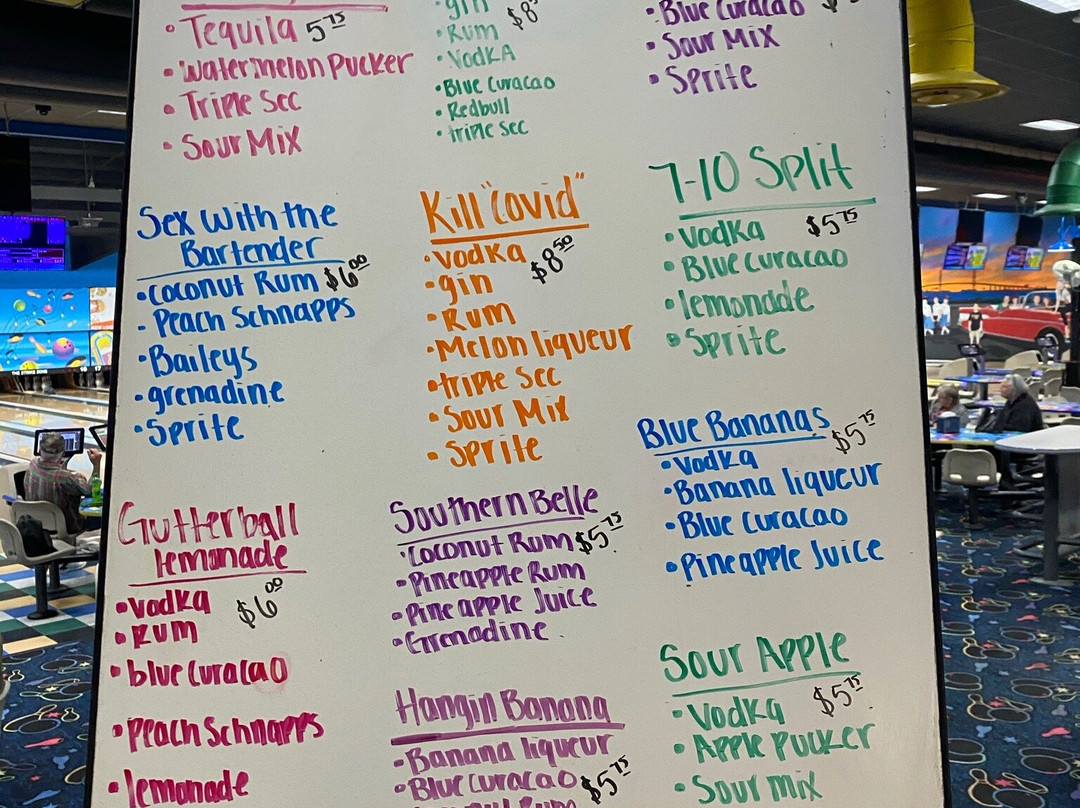 • Tequila 5 75
• Watermelon Pucker
• Triple Sec
• Sour Mix
Sex with the
Bartender
• Coconut Rum $6 00
• Peach Schnapps
• Baileys
• grenadine
• Sprite
Gutterball
lemonade
• Vodka $6 00
• Rum
• blue Curacao
• Peach Schnapps
• lemonade
• gin
• Rum
• Vodka
• Blue Curacao
• Redbull
• triple sec
Kill "Covid"
• Vodka $8 50
• gin
• Rum
• Melon liqueur
• triple sec
• Sour Mix
• Sprite
Southern Belle
• Coconut Rum $5 75
• Pineapple Rum
• Pineapple Juice
• Grenadine
Hangin Banana
• Banana liqueur
• Blue Curacao $5 75
Rum
• Blue Curacao
• Sour Mix
• Sprite
7-10 Split
• Vodka $5 75
• Blue Curacao
• lemonade
• Sprite
Blue Bananas $5 75
• Vodka
• Banana liqueur
• Blue Curacao
• Pineapple Juice
Sour Apple
• Vodka $5 75
• Apple Pucker
• Sour mix